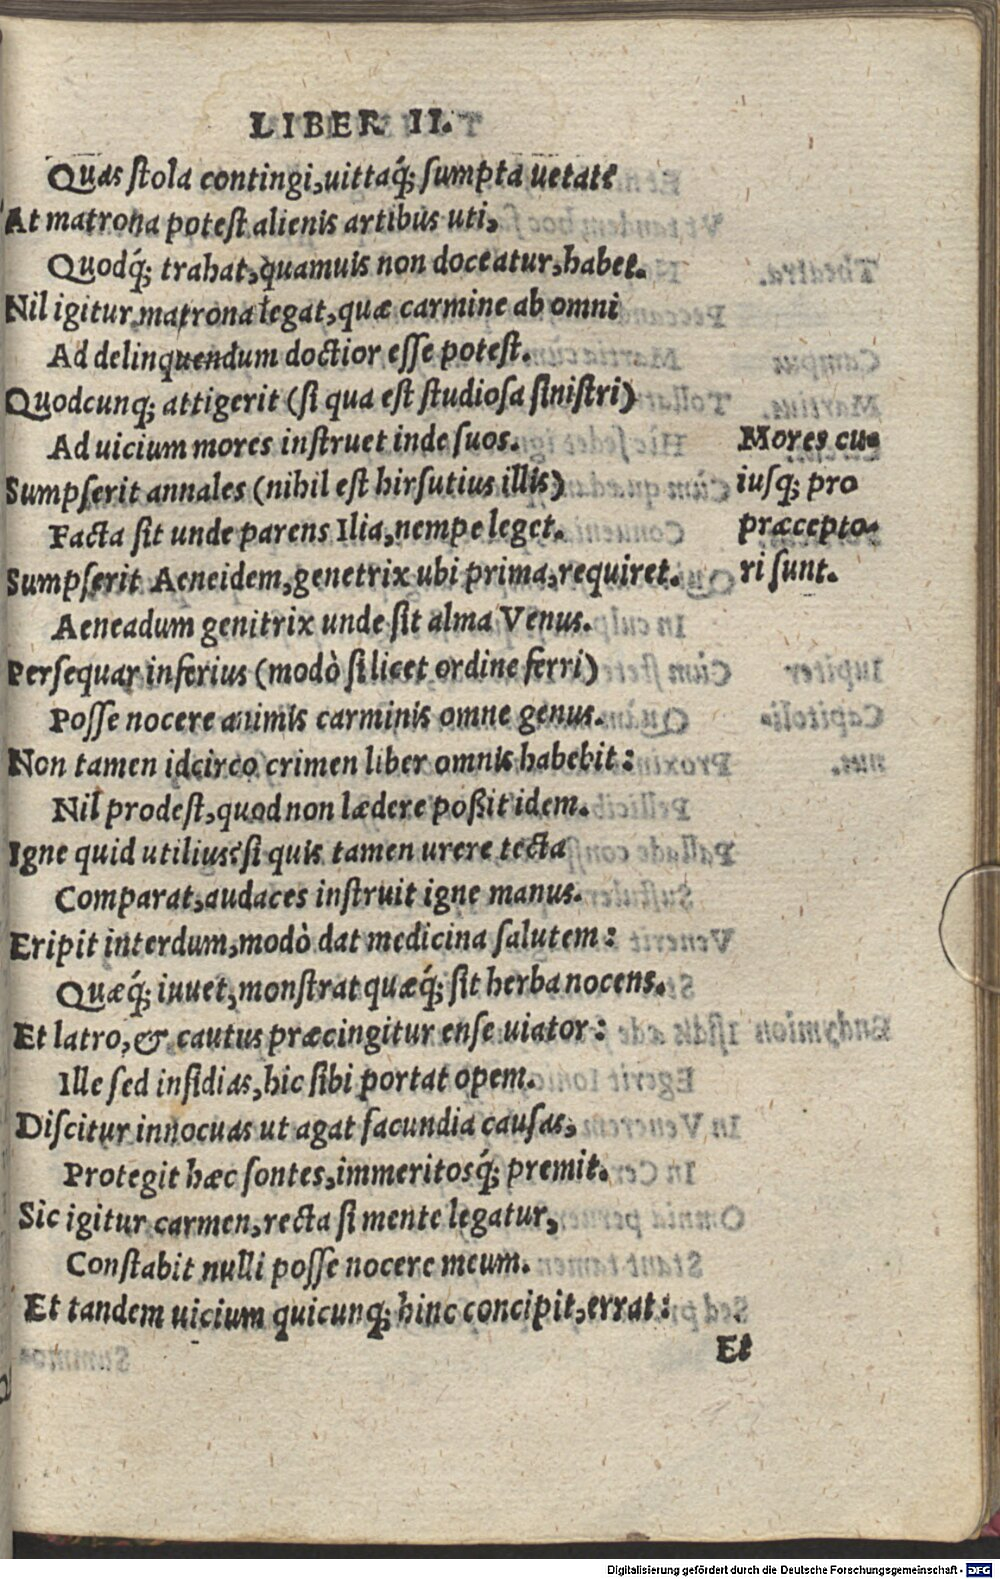 LIBER II.
Quas ſtola contingi, uittaq́; ſumpta uetate
At matrona poteſt alienis artibus uti,
Quodq́; trahat, quamuis non doceatur, habet.
Nil igitur matrona legat, quæ carmine ab omni
Ad delinquendum doctior eſſe poteſt.
Quodcunq; attigerit (ſi qua eſt ſtudioſa ſiniſtri)
Ad uicium mores inſtruet inde ſuos.
Sumpſerit annales (nihil eſt hirſutius illis)
Facta ſit unde parens Ilia, nempe leget.
Sumpſerit Aeneidem, genetrix ubi prima, requiret.
Aeneadum genitrix unde ſit alma Venus.
Perſequar inferius (modò ſi licet ordine ferri)
Poſſe nocere animis carminis omne genus.
Non tamen idcirco crimen liber omnis habebit:
Nil prodeſt, quod non lædere poßit idem.
Igne quid utilius? ſi quis tamen urere tecta
Comparat, audaces inſtruit igne manus.
Eripit interdum, modò dat medicina ſalutem:
Quæq́; iuuet, monſtrat quæq́; ſit herba nocens.
Et latro, & cautus præcingitur enſe uiator:
Ille ſed inſidias, hic ſibi portat opem.
Diſcitur innocuas ut agat facundia cauſas,
Protegit hæc ſontes, immeritosq́; premit.
Sic igitur carmen, recta ſi mente legatur,
Conſtabit nulli poſſe nocere meum.
Et tandem uicium quicunq; hinc concipit, errat:
Et
Mores cu-
iuſq; pro
præcepto-
ri ſunt.
Digitalisierung gefördert durch die Deutsche Forschungsgemeinschaft - DFG